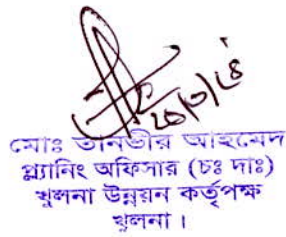 মোঃ তানভীর আহমেদ
প্ল্যানিং অফিসার (চঃ দাঃ)
খুলনা উন্নয়ন কর্তৃপক্ষ
খুলনা।